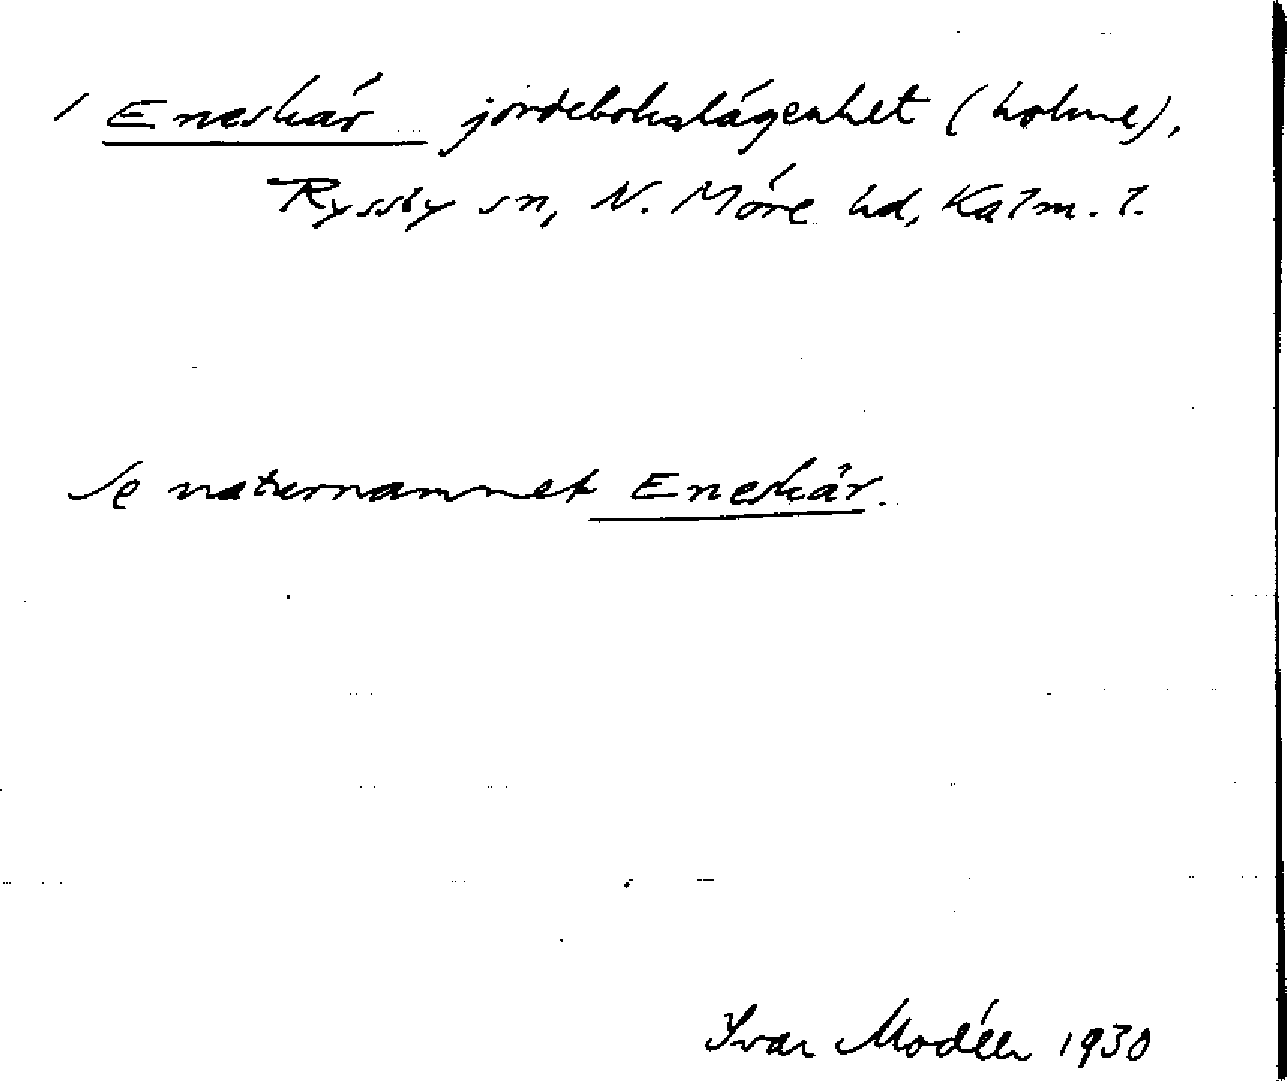 / Eneskär jordebokslägenhet (holme),
Ryssby sn, N. Möre hd, Kalm. l.
Se naturnamnet Eneskär.
Ivar Modéer 1930